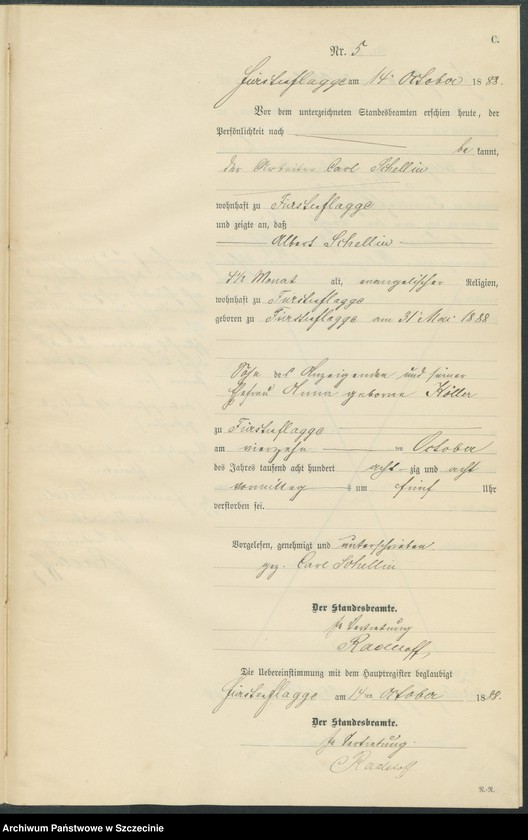 C.
Nr. 5
Fürstenflagge am 14 October 1888.
Vor dem unterzeichneten Standesbeamten erschien heute, der
Persönlichkeit nach
be kannt,
der Arbeiter Carl Schellin
wohnhaft zu Fürstenflagge
und zeigte an, daß
Albert Schellin
4½ Monat alt, evangelischer Religion,
wohnhaft zu Fürstenflagge
geboren zu Fürstenflagge am 31 Mai 1888
Sohn des Anzeigenden und seiner
Ehefrau Anna geborne Köller
zu Fürstenflagge
am vierzehn ten October
des Jahres tausend acht hundert acht zig und acht
Vormittag s um fünf Uhr
verstorben sei.
Vorgelesen, genehmigt und unterschrieben
gez. Carl Schellin
Der Standesbeamte.
In Vertretung
Die Uebereinstimmung mit dem Hauptregister beglaubigt
Fürstenflagge am 14ten October 1888.
Der Standesbeamte.
In Vertretung
R.-R.
Archiwum Państwowe w Szczecinie